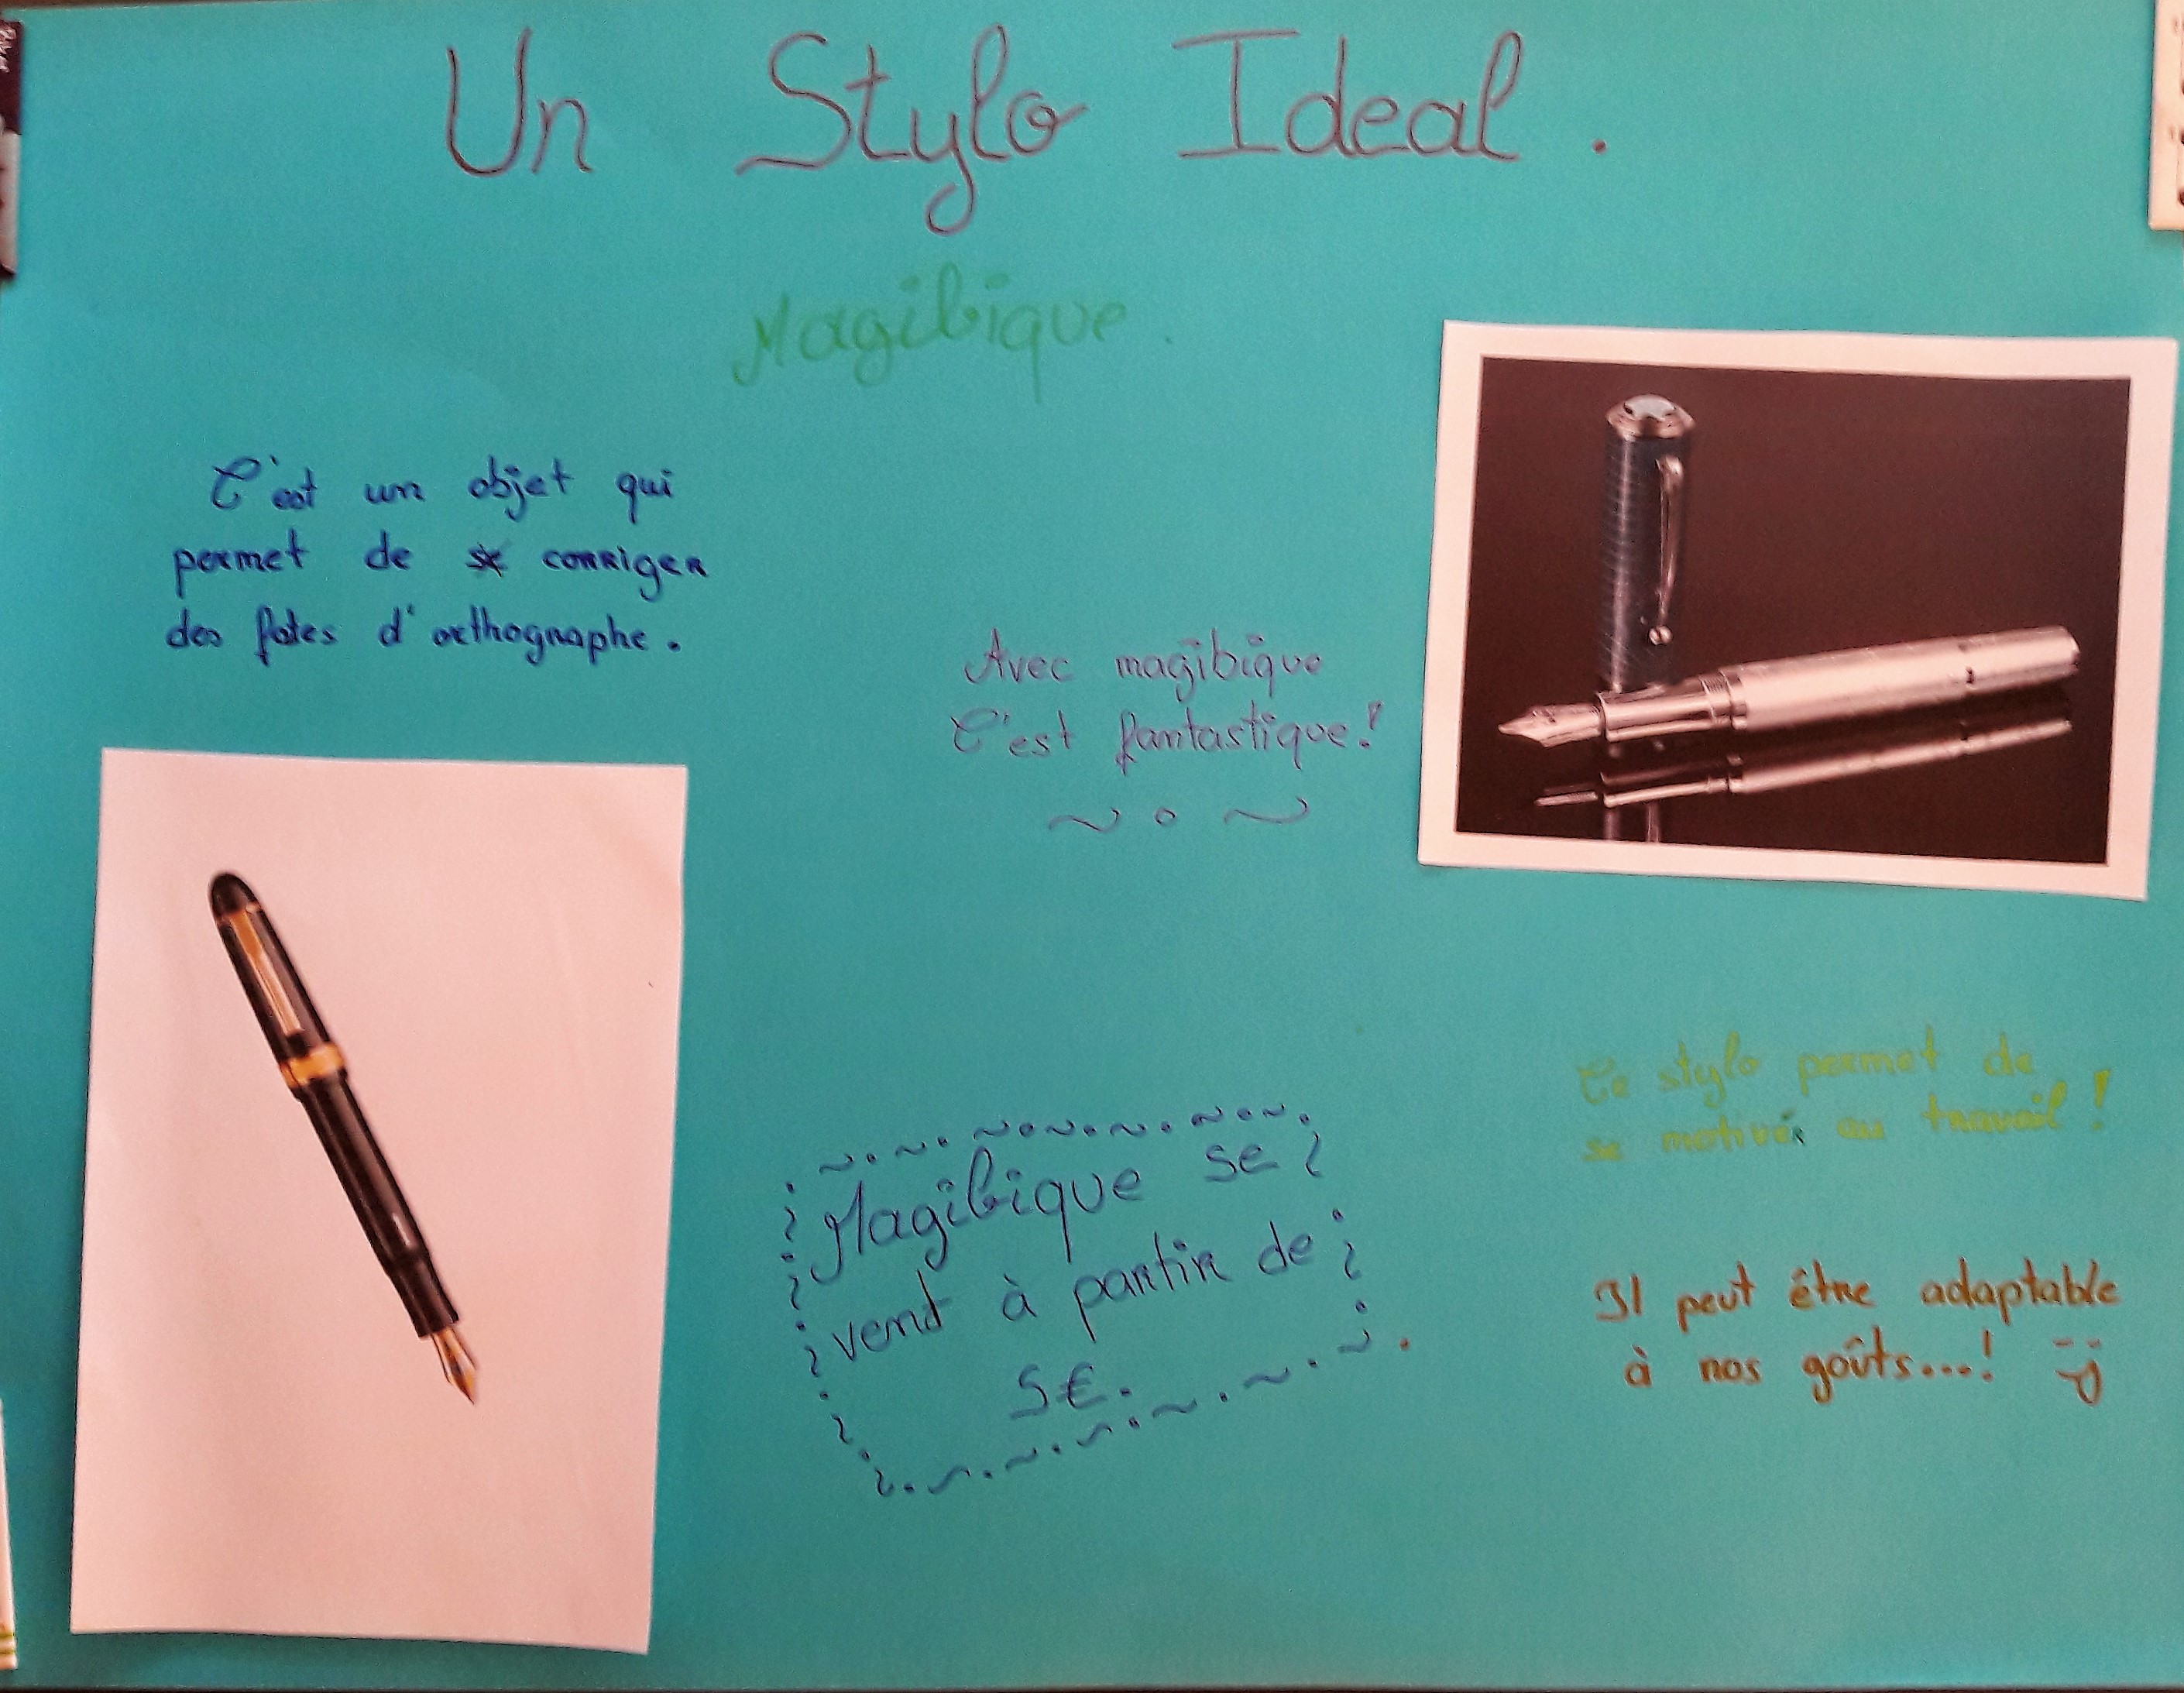 Un Stylo Ideal.
Magibique.
C'est un objet qui
permet de corriger
des fotes d'orthographe.
Avec magibique
C'est fantastique!
Ce stylo permet de
se motivér au travail!
Magibique se
vend à partir de
5€.
Il peut être adaptable
à nos goûts...!